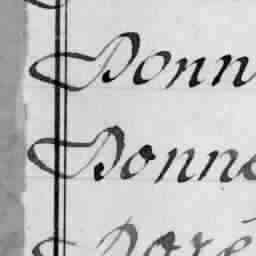 Donn
Donne
Doré